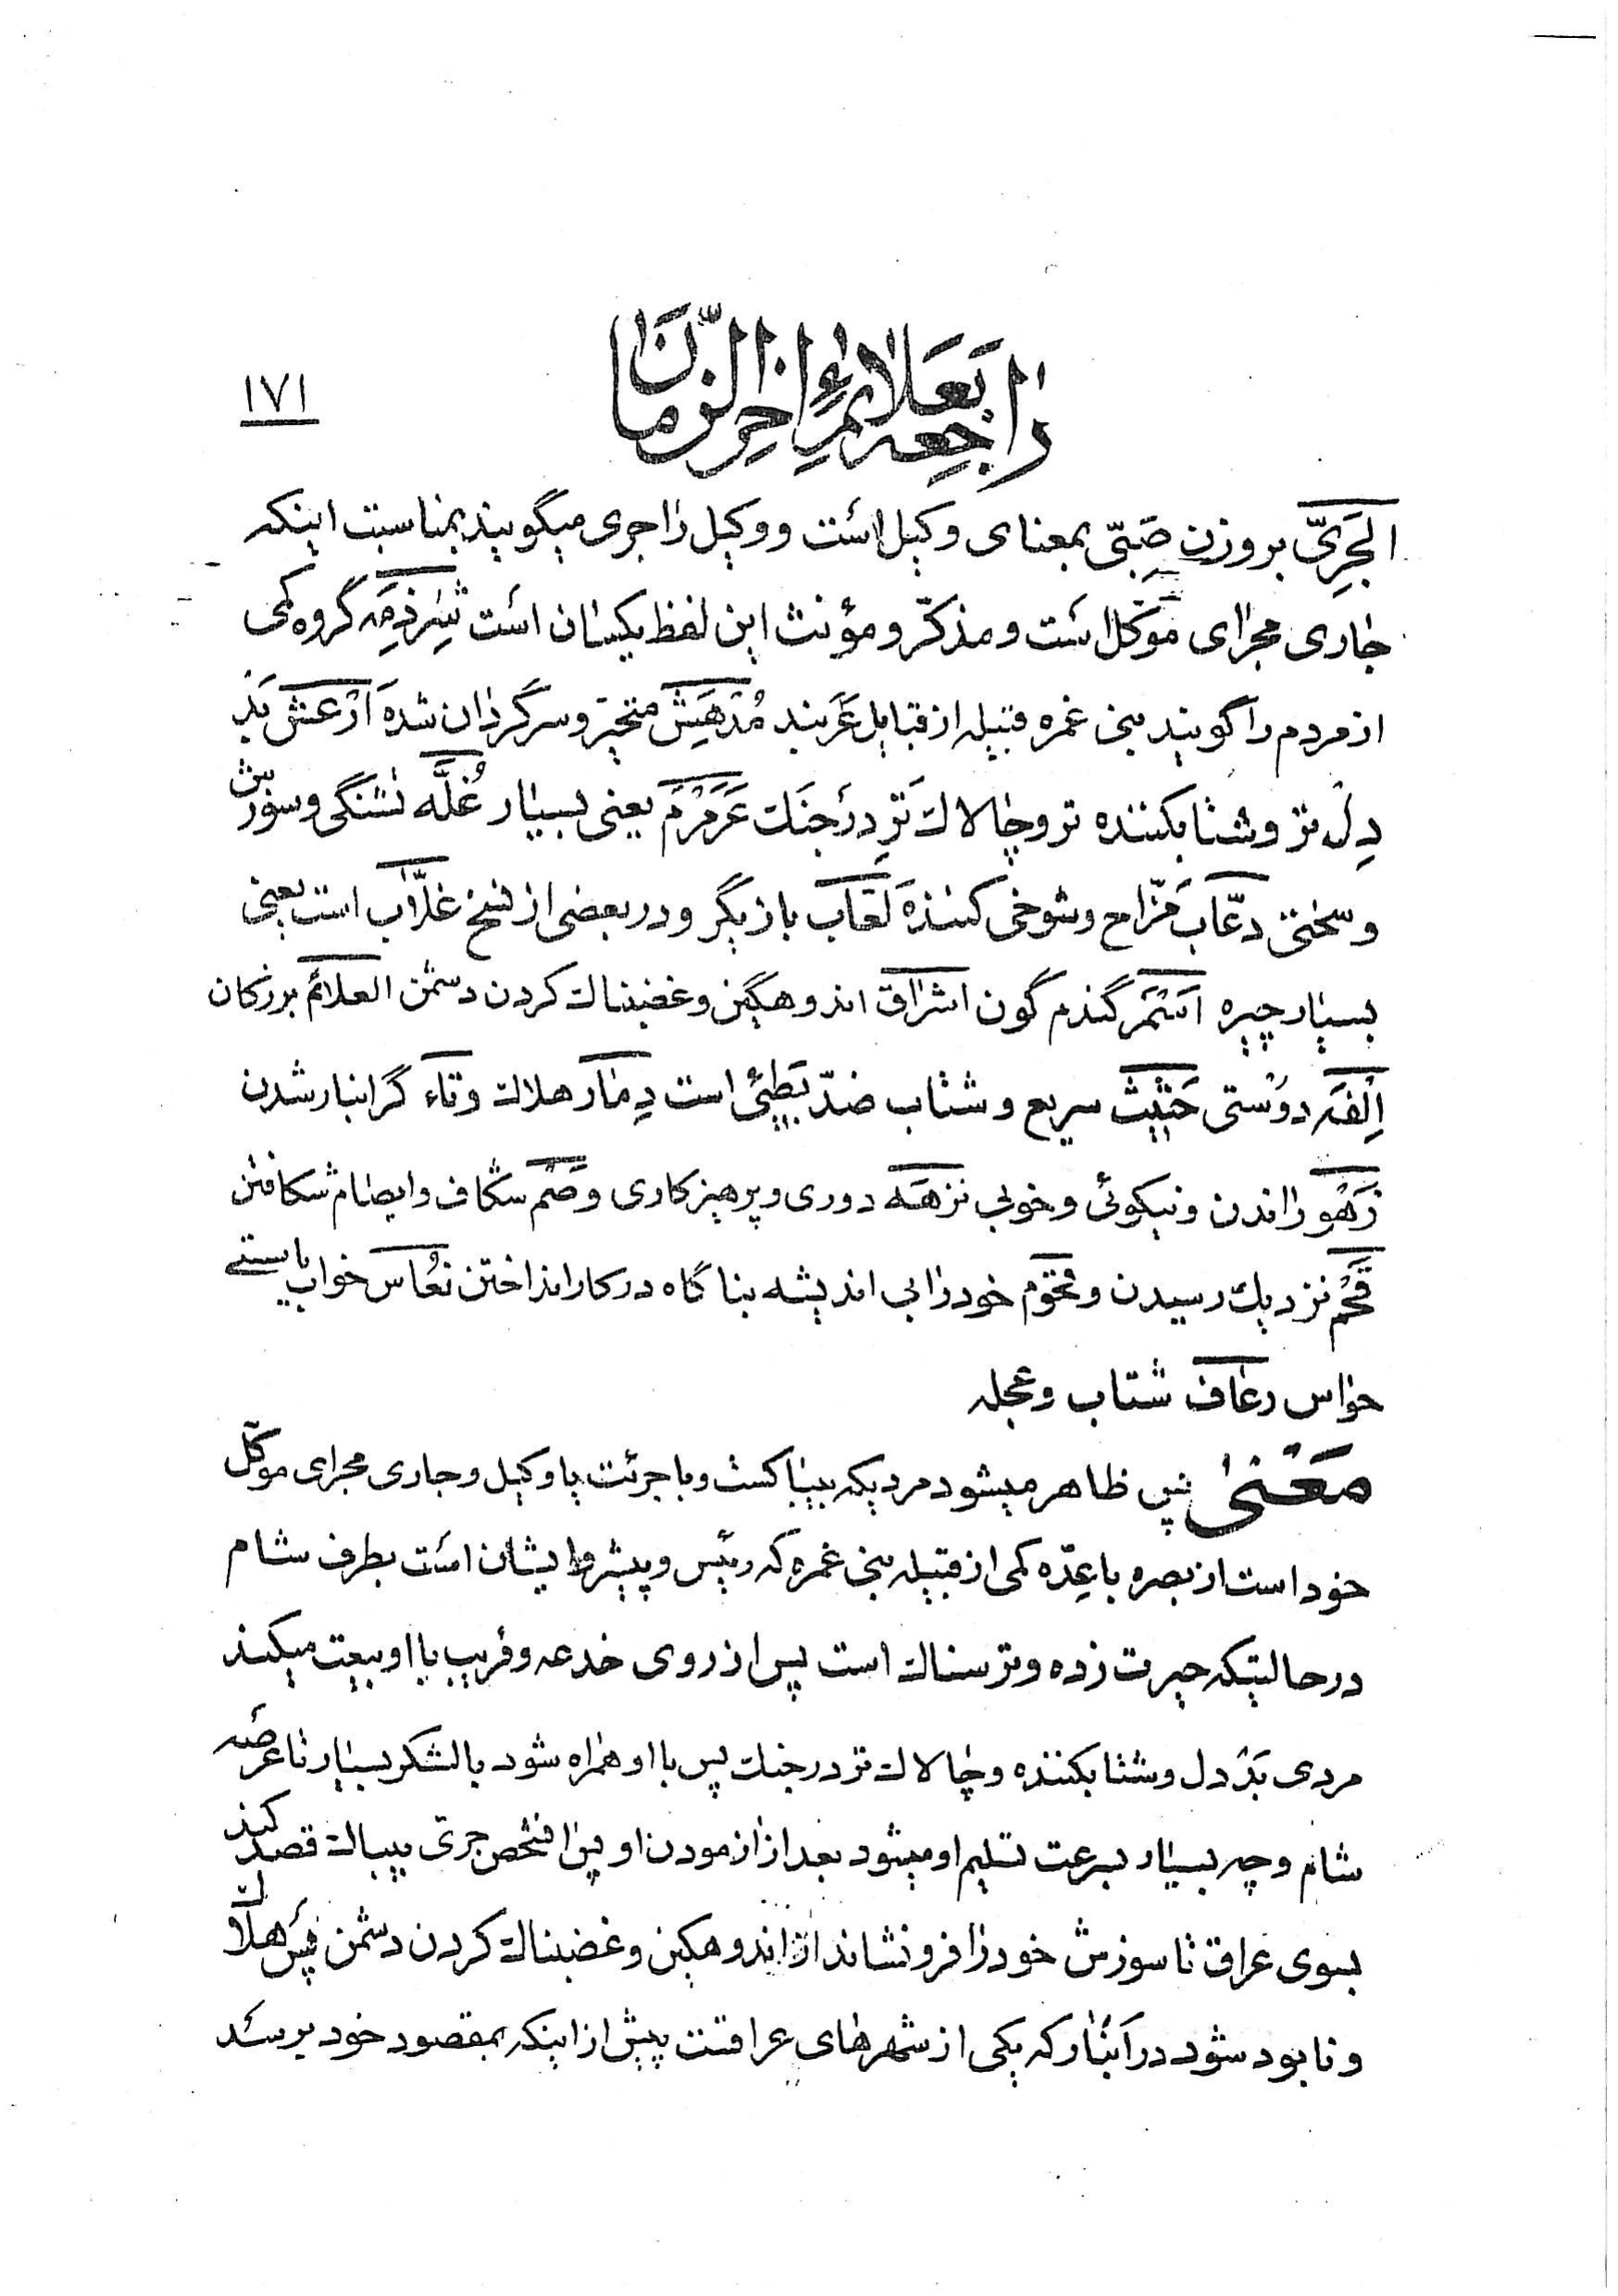 راجعه بعلائم اخر الزمان
۱۷۱
الجَرِیّ بروزن صَبّی بمعنای وکیل است و وکیل را جری میگویند بمناسبت اینکه
جاری مجرای موکل است و مذکّر و مؤنث این لفظ یکسان است شِرذِمَه گروه کمی
از مردم را گویند بنی غمره قبیله از قبایل عَرَبند مُدهَش متحیّر و سرگردان شده اَرْعَش بَد
دِل تر و شتابکننده تر و چالاک تَر در جنک عَرَمرَم یعنی بسیار غُلَّه تشنگی و سوزش
و سختی دعّاب مزّاح و شوخی کننده لعّاب بازیگر و در بعضی از نسخ غلّاب است یعنی
بسیار چیره اَسمَر گندم گون اشراق اندوهگین و غضبناک کردن دشمن العلائم بزرکان
اِلْفَه دوستی حَثیث سریع و شتاب ضدّ بَطیئ است دِمار هلاک وقاء گرانبار شدن
زَهْو راندن و نیکوئی و خوبی نزهَه دوری و پرهیزکاری وصم شکاف و ایصام شکافتن
قَحْم نزدیک رسیدن و قحوم خود را بی اندیشه بناگاه در کار انداختن نُعاس خواب یا سستی
حواس رعاف شتاب و عجله
مَعْنی پس ظاهر میشود مردیکه بیباکست و با جرئت یا وکیل و جاری مجرای موکّل
خود است از بصره با عِدّه کمی از قبیله بنی غمره که رئیس و پیشروا یشان است بطرف شام
در حالتیکه حیرت زده و ترسناک است پس از روی خدعه و فریب با او بیعت میکند
مردی بَد دل و شتابکننده و چالاک تر در جنک پس با او همراه شود با لشکر بسیار تا عرصه
شام و چه بسیار بسرعت تسلیم او میشود بعد از ازمودن او پس انشخص جری بیباک قصد کند
بسوی عراق تا سوزش خود را فرو نشاند از اندوهکین و غضبناک کردن دشمن پس هلاک
و نابود شود در اَنبار که یکی از شهرهای عراقست پیش از اینکه بمقصود خود برسد